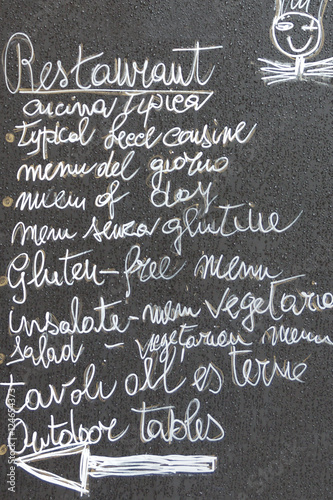 Restaurant
cucina tipica
typical feed cousine
menu del giorno
nuem of day
menu senza glutine
Gluten-free menu
insalate-menu vegetaria
salad - vegetarian menu
Tavoli all esterne
Outdoor tables